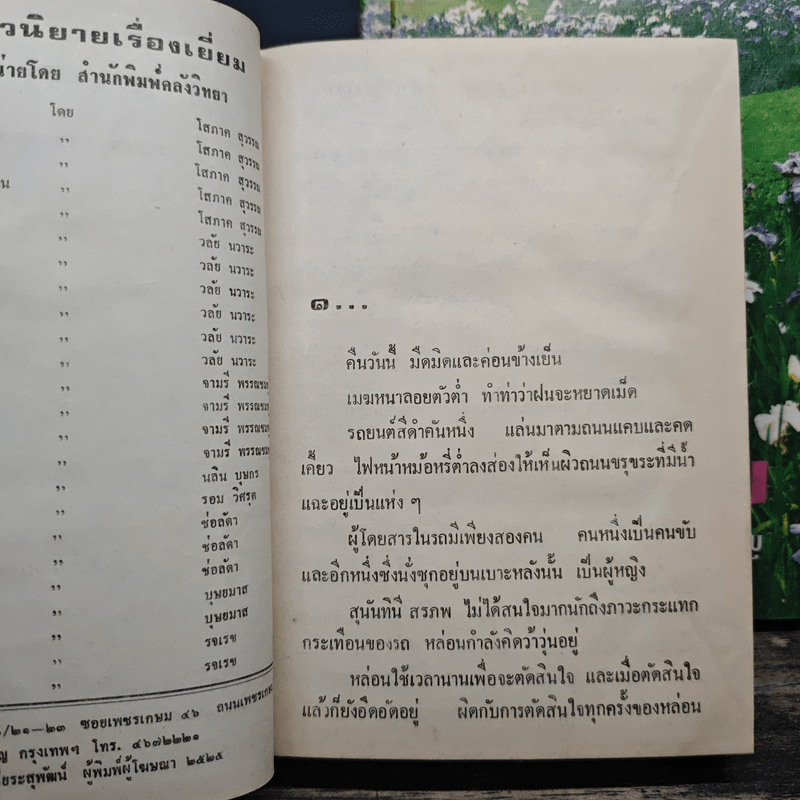 วนิยายเรื่องเยี่ยม
น่ายโดย สำนักพิมพ์คลังวิทยา
โดย โสภาค สุวรรณ
,, โสภาค สุวรรณ
,, โสภาค สุวรรณ
น ,, โสภาค สุวรรณ
,, โสภาค สุวรรณ
,, วลัย นวาระ
,, วลัย นวาระ
,, วลัย นวาระ
,, วลัย นวาระ
,, วลัย นวาระ
,, วลัย นวาระ
,, จามรี พรรณชม
,, จามรี พรรณชม
,, จามรี พรรณชม
,, จามรี พรรณชม
,, นลิน บุษกร
,, รอม วิศรุต
,, ช่อลัดา
,, ช่อลัดา
,, ช่อลัดา
,, บุษยมาส
,, บุษยมาส
,, รจเรข
,, รจเรข
/๒๑-๒๓ ซอยเพชรเกษม ๔๖ ถนนเพชรเกษ
ญ กรุงเทพฯ โทร. ๔๖๗๒๒๒๑
ยระสุพัฒน์ ผู้พิมพ์ผู้โฆษณา ๒๕๒๕
๑...
คืนวันนี้ มืดมิดและค่อนข้างเย็น
เมฆหนาลอยตัวต่ำ ทำท่าว่าฝนจะหยาดเม็ด
รถยนต์สีดำคันหนึ่ง แล่นมาตามถนนแคบและคด
เคี้ยว ไฟหน้าหม้อหรี่ต่ำลงส่องให้เห็นผิวถนนขรุขระที่มีน้ำ
แฉะอยู่เป็นแห่ง ๆ
ผู้โดยสารในรถมีเพียงสองคน คนหนึ่งเป็นคนขับ
และอีกหนึ่งซึ่งนั่งซุกอยู่บนเบาะหลังนั้น เป็นผู้หญิง
สุนันทินี สรภพ ไม่ได้สนใจมากนักถึงภาวะกระแทก
กระเทือนของรถ หล่อนกำลังคิดว้าวุ่นอยู่
หล่อนใช้เวลานานเพื่อจะตัดสินใจ และเมื่อตัดสินใจ
แล้วก็ยังอึดอัดอยู่ ผิดกับการตัดสินใจทุกครั้งของหล่อน